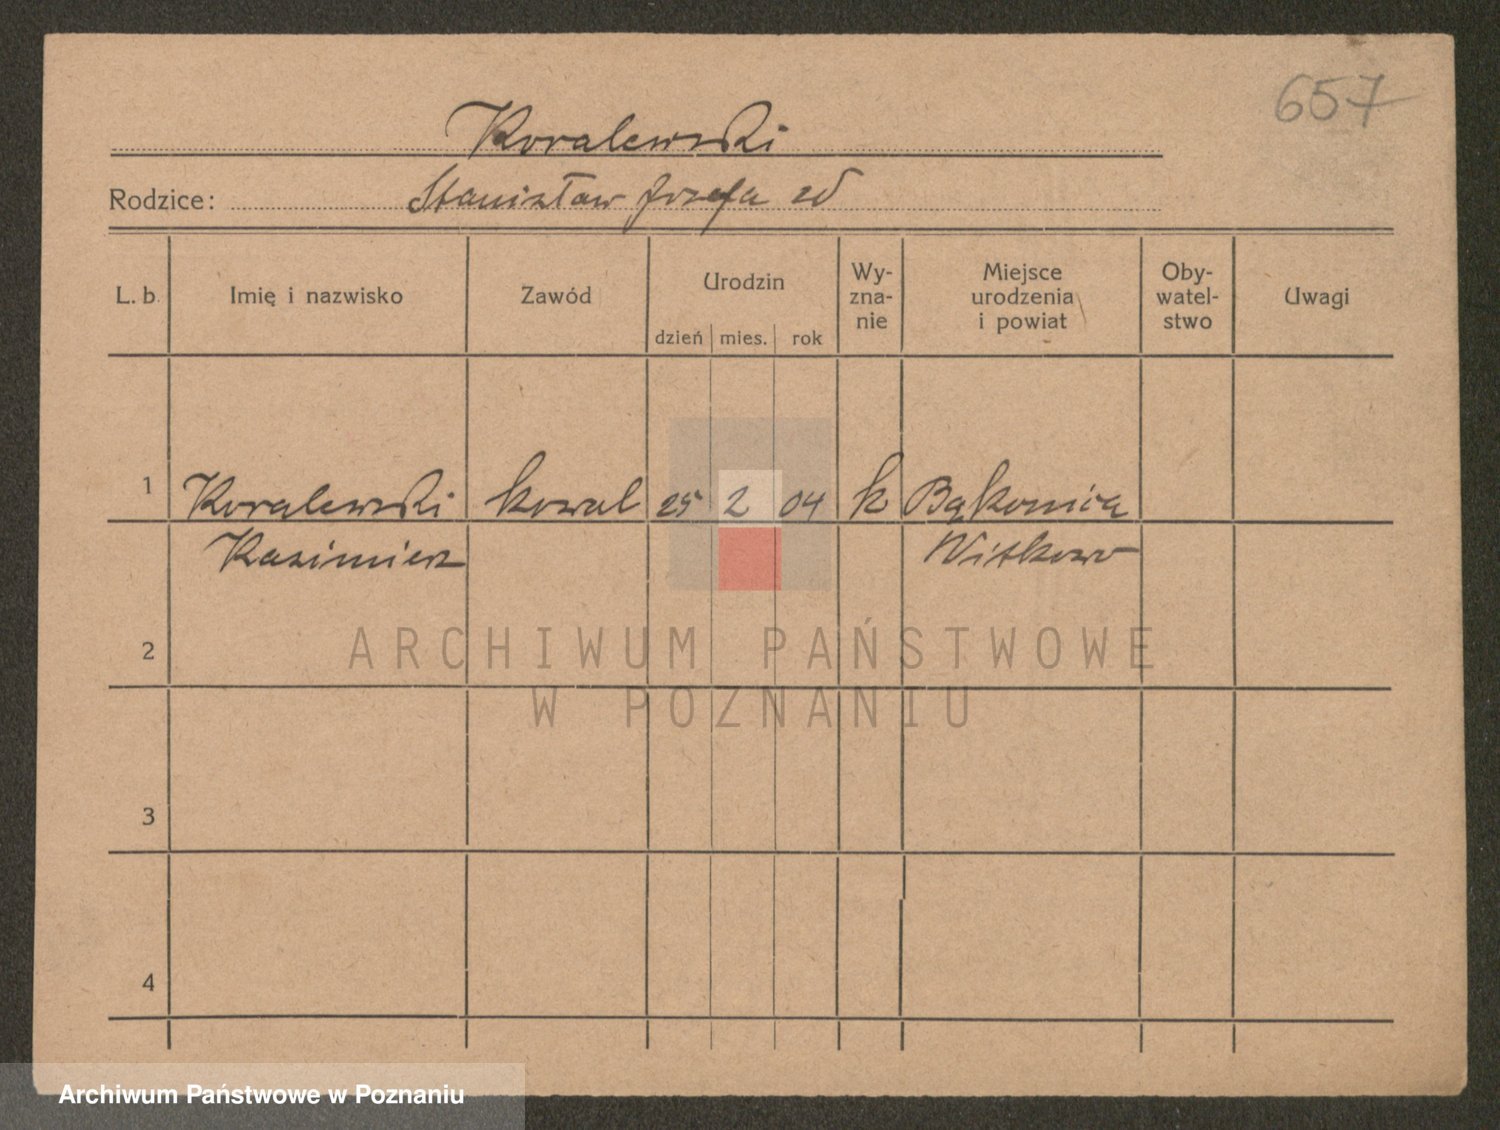 657
Koralewski
Rodzice: Stanisław Józefa zd
L. b. Imię i nazwisko Zawód Urodzin dzień mies. rok Wy-
zna-
nie Miejsce
urodzenia
i powiat Oby-
watel-
stwo Uwagi
1 Koralewski kowal 25 2 04 k
Kazimierz Witkowo
2
ARCHIWUM PAŃSTWOWE
W POZNANIU
3
4
Archiwum Państwowe w Poznaniu